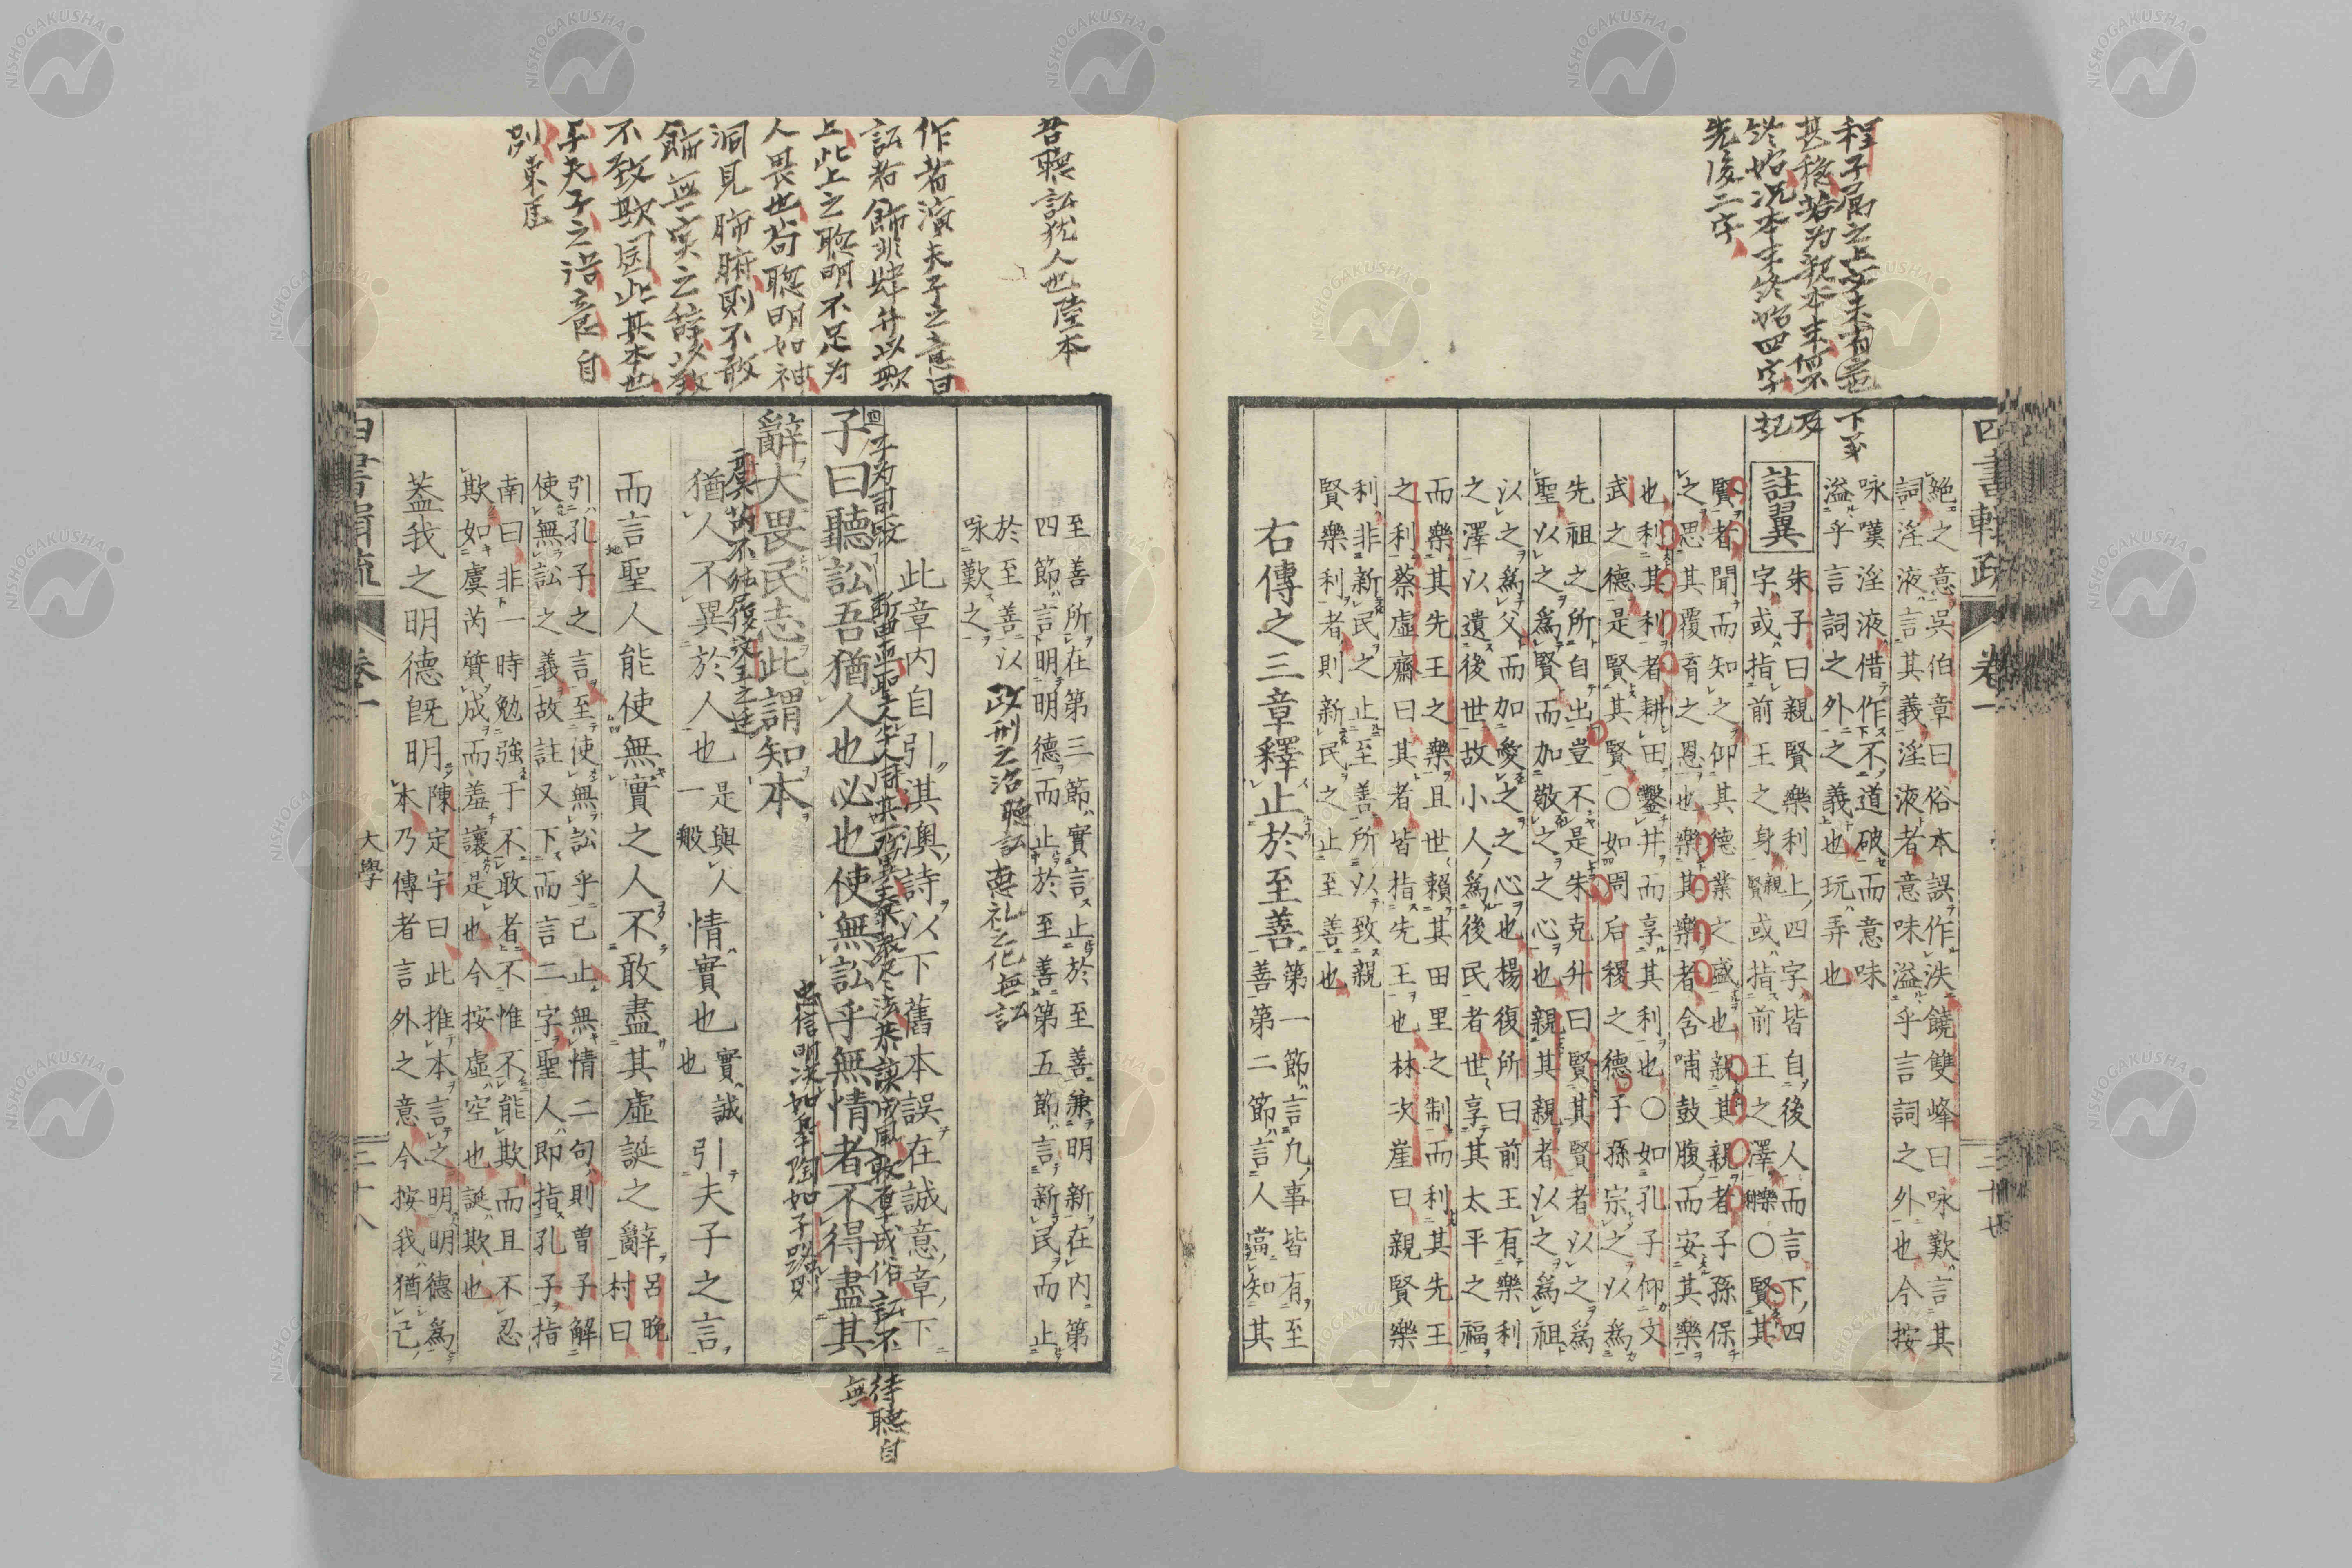 程子屬之上文未有
甚穩若为釈本末便不及
終始況本末終始四字記
先後二字
下矛
四書輯疏
卷一
絶之意吳伯章曰俗本誤作泆饒雙峰曰咏歎言其
詞淫液言其義淫液者意味溢乎言詞之外也今按
咏嘆淫液借作不道破而意味
溢乎言詞之外之義也玩弄也
註翼
朱子曰親賢樂利上四字皆自後人而言下四
字或指前王之身親賢或指前王之澤樂利○賢其
賢者聞而知之仰其德業之盛也親其親者子孫保
之思其覆育之恩也樂其樂者含哺鼓腹而安其樂
也利其利者耕田鑿井而享其利也○如孔子仰文
武之德是賢其賢○如周后稷之德子孫宗之以為
先祖之所自出豈不是朱克升曰賢其賢者以之為
聖以之為賢而加敬之之心也親其親者以之為祖
以之為父而加愛之之心也楊復所曰前王有樂利
之澤以遺後世故小人為後民者世享其太平之福
而樂其先王之樂且世賴其田里之制而利其先王
之利蔡虛齋曰其者皆指先王也林次崖曰親賢樂
利非新民之止至善所以致親
賢樂利者則新民之止至善也
右傳之三章釋止於至善第一節言九事皆有至
善第二節言人當知其
至善所在第三節實言止於至善兼明新在內第
四節言明明德而止於至善第五節言新民而止
於至善以
咏歎之
政刑之治聽訟専礼之化無訟
吾聽訟犹人也陸本
作者演夫子之意曰
訟者飾非肆弁以欺
上此上之聡明不足为
人畏也苟聡明如神
洞見肺腑則不敢
飾無実之辞以教
不致欺因此其本也
子夫子之語意自
別東厓
此章內自引淇澳詩以下舊本誤在誠意章下
子曰聽訟吾猶人也必也使無訟乎無情者不得盡其
辭大畏民志此謂知本
猶人不異於人也是與人
一般情實也實誠
也引夫子之言
而言聖人能使無實之人不敢盡其虛誕之辭呂晚
村曰
引孔子之言至使無訟乎已止無情二句則曾子解
使無訟之義故註又下而言二字聖人即指孔子指
南曰非一時勉強于不敢者不惟不能欺而且不忍
欺如虞芮質成而羞讓是也今按虛空也誕欺也
葢我之明德既明陳定宇曰此推本言之明明德為
本乃傳者言外之意今按我猶己
大學
二十八
待聽自
無